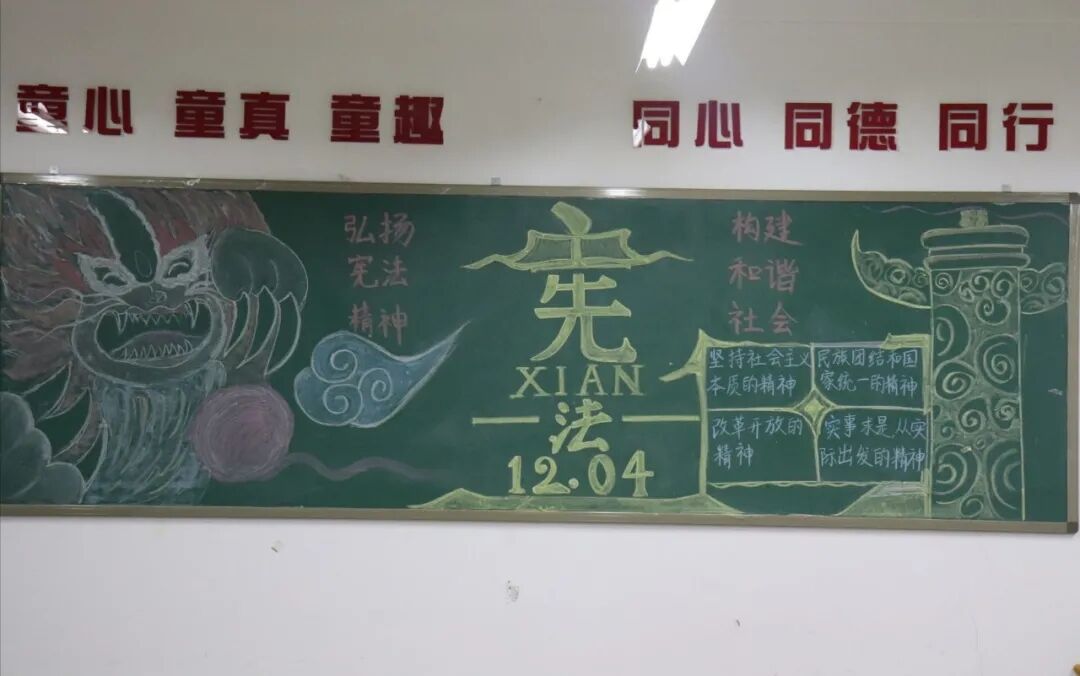 童心 童真 童趣
同心 同德 同行
弘扬
宪法
精神
宪
XIAN
法
12.04
构建
和谐
社会
坚持社会主义
本质的精神
民族团结和国
家统一的精神
改革开放的
精神
实事求是、从实
际出发的精神